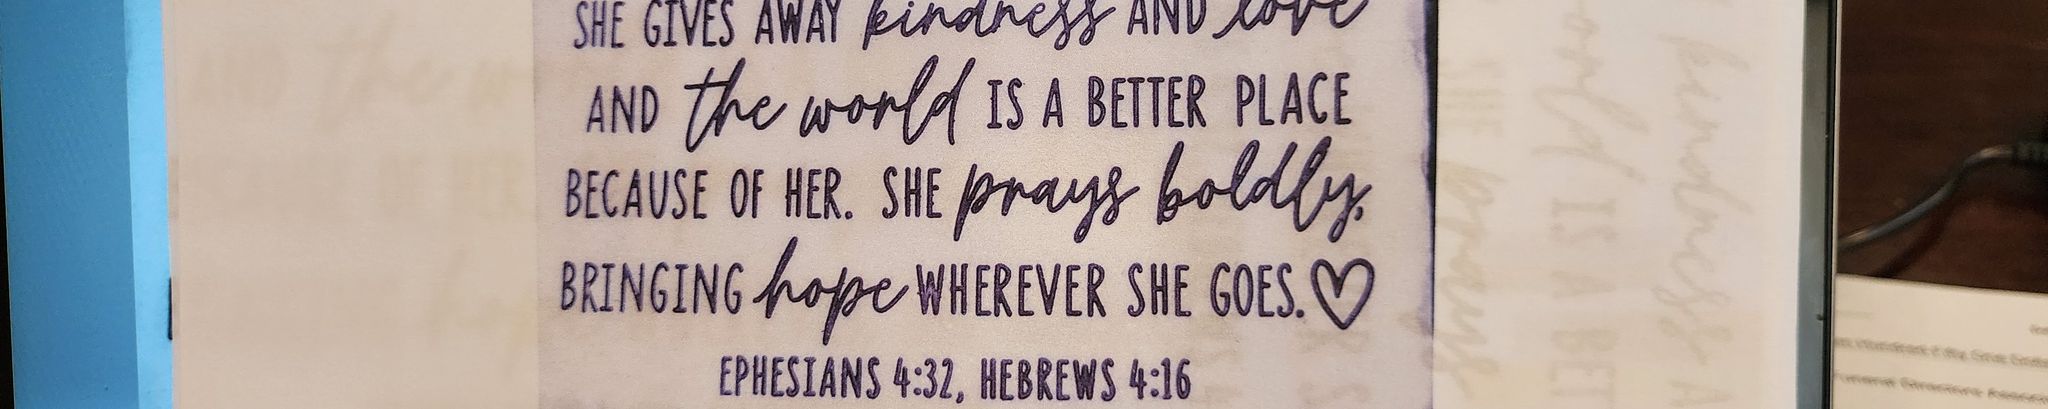 SHE GIVES AWAY kindness AND love
AND the world IS A BETTER PLACE
BECAUSE OF HER. SHE prays boldly,
BRINGING hope WHEREVER SHE GOES.
EPHESIANS 4:32, HEBREWS 4:16